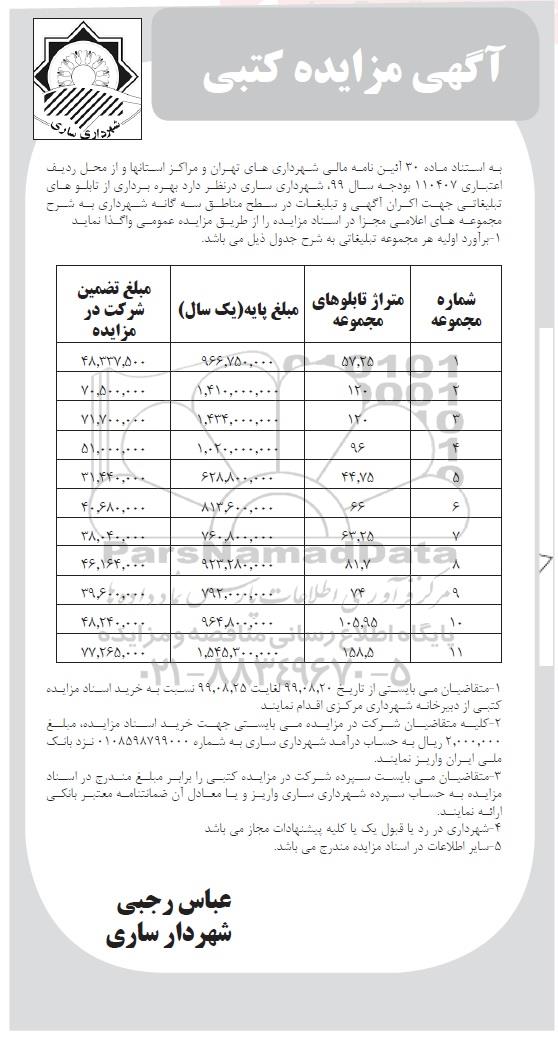 آگهی مزایده کتبی
شهرداری ساری
به استناد ماده ۳۰ آئین نامه مالی شهرداری های تهران و مراکز استانها و از محل ردیف
اعتباری ۱۱۰۴۰۷ بودجه سال ۹۹، شهرداری ساری درنظر دارد بهره برداری از تابلو های
تبلیغاتی جهت اکران آگهی و تبلیغات در سطح مناطق سه گانه شهرداری به شرح
مجموعه های اعلامی مجزا در اسناد مزایده را از طریق مزایده عمومی واگذا نماید
۱-برآورد اولیه هر مجموعه تبلیغاتی به شرح جدول ذیل می باشد.
شماره مجموعه | متراژ تابلوهای مجموعه | مبلغ پایه(یک سال) | مبلغ تضمین شرکت در مزایده
۱ | ۵۷,۲۵ | ۹۶۶,۷۵۰,۰۰۰ | ۴۸,۳۳۷,۵۰۰
۲ | ۱۲۰ | ۱,۴۱۰,۰۰۰,۰۰۰ | ۷۰,۵۰۰,۰۰۰
۳ | ۱۲۰ | ۱,۴۳۴,۰۰۰,۰۰۰ | ۷۱,۷۰۰,۰۰۰
۴ | ۹۶ | ۱,۰۲۰,۰۰۰,۰۰۰ | ۵۱,۰۰۰,۰۰۰
۵ | ۴۴,۷۵ | ۶۲۸,۸۰۰,۰۰۰ | ۳۱,۴۴۰,۰۰۰
۶ | ۶۶ | ۸۱۳,۶۰۰,۰۰۰ | ۴۰,۶۸۰,۰۰۰
۷ | ۶۳,۲۵ | ۷۶۰,۸۰۰,۰۰۰ | ۳۸,۰۴۰,۰۰۰
۸ | ۸۱,۷ | ۹۲۳,۲۸۰,۰۰۰ | ۴۶,۱۶۴,۰۰۰
۹ | ۷۴ | ۷۹۲,۰۰۰,۰۰۰ | ۳۹,۶۰۰,۰۰۰
۱۰ | ۱۰۵,۹۵ | ۹۶۴,۸۰۰,۰۰۰ | ۴۸,۲۴۰,۰۰۰
۱۱ | ۱۵۸,۵ | ۱,۵۴۵,۳۰۰,۰۰۰ | ۷۷,۲۶۵,۰۰۰
ParsNamadData
مرکز فرآوری اطلاعات پارس نماد داده ها
پایگاه اطلاع رسانی مناقصه و مزایده
۰۲۱-۸۸۳۴۹۶۷۰-۵
۱-متقاضیان می بایستی از تاریخ ۹۹,۰۸,۲۰ لغایت ۹۹,۰۸,۲۵ نسبت به خرید اسناد مزایده
کتبی از دبیرخانه شهرداری مرکزی اقدام نمایند
۲-کلیه متقاضیان شرکت در مزایده می بایستی جهت خرید اسناد مزایده، مبلغ
۲,۰۰۰,۰۰۰ ریال به حساب درآمد شهرداری ساری به شماره ۰۱۰۸۵۹۸۷۹۹۰۰۰ نزد بانک
ملی ایران واریز نمایند.
۳-متقاضیان می بایست سپرده شرکت در مزایده کتبی را برابر مبلغ مندرج در اسناد
مزایده به حساب سپرده شهرداری ساری واریز و یا معادل آن ضمانتنامه معتبر بانکی
ارائه نمایند.
۴-شهرداری در رد یا قبول یک یا کلیه پیشنهادات مجاز می باشد
۵-سایر اطلاعات در اسناد مزایده مندرج می باشد.
عباس رجبی
شهردار ساری